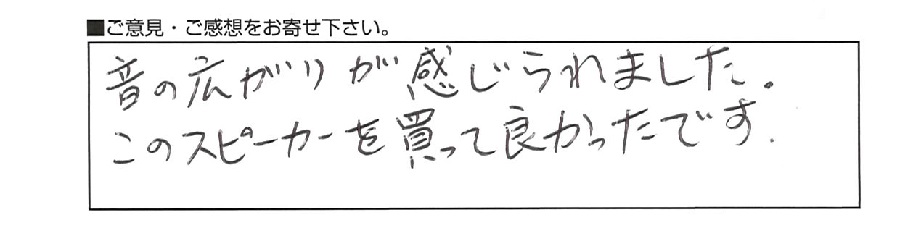 ■ご意見・ご感想をお寄せ下さい。
音の広がりが感じられました。
このスピーカーを買って良かったです.